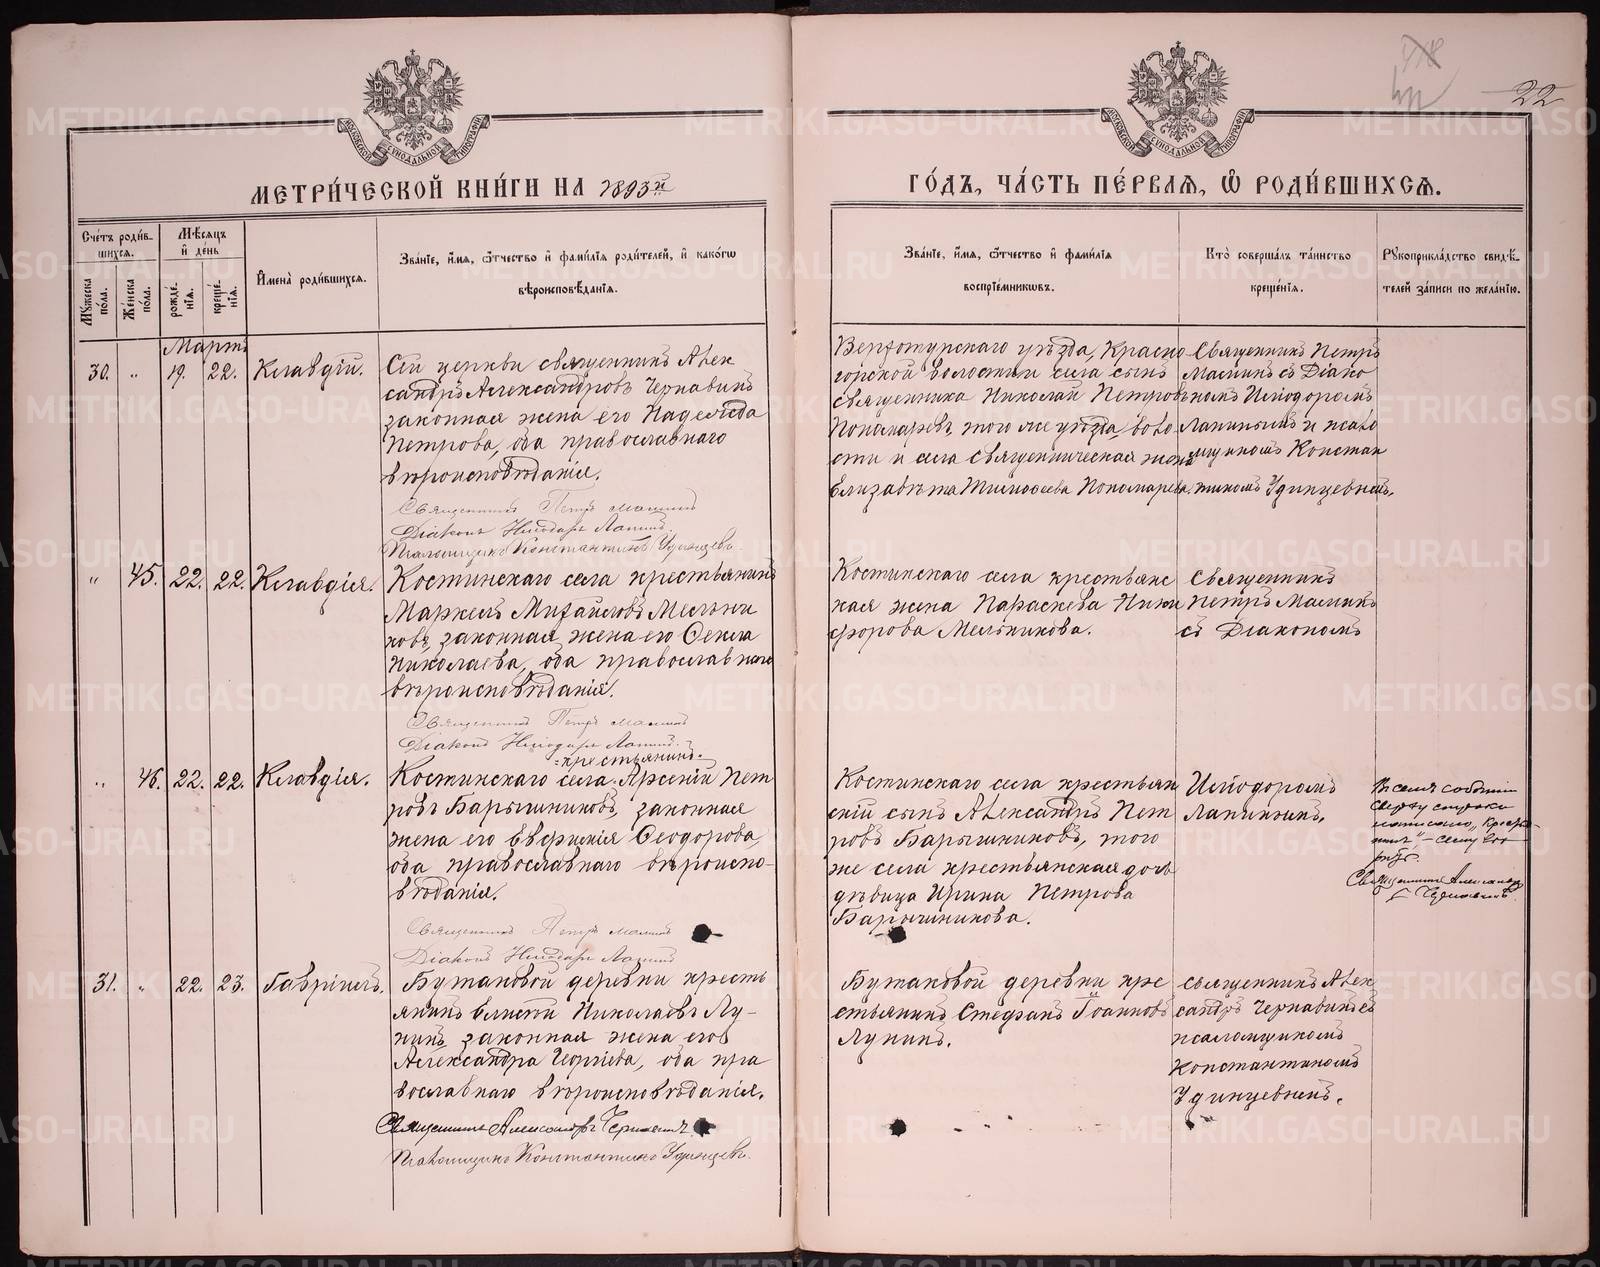 22
МОСКОВСКОЙ СѴНОДАЛЬНОЙ ТИПОГРАФІИ
МОСКОВСКОЙ СѴНОДАЛЬНОЙ ТИПОГРАФІИ
МЕТРИ́ЧЕСКОЙ КНИ́ГИ НА 1893й
ГО́ДЪ, ЧА́СТЬ ПЕ́РВАЯ, Ѡ҆ РОДИ́ВШИХСЯ.
Сче́тъ роди́в-
шихся.
Му́жеска по́ла.
Же́нска по́ла.
Мѣ́сяцъ и҆ де́нь
рожде́-
нїя.
креще́-
нїя.
И҆мена̀ роди́вшихся.
Зва́нїе, и҆́мя, ѻ҆́тчество и҆ фами́лїя роди́телей, и҆ како́гѡ
вѣроисповѣ́данїя.
Зва́нїе, и҆́мя, ѻ҆́тчество и҆ фами́лїя
воспрїе́мникѡвъ.
Кто̀ соверша́лъ та́инство
креще́нїя.
Рукоприкла́дство свидѣ́-
телей за́писи по жела́нїю.
Мартъ
30. „ 19. 22. Клавдій.
Сей церкви священникъ Алек
сандръ Александровъ Чернавинъ
законная жена его Надежда
Петрова, оба православнаго
вѣроисповѣданія.
Священникъ Петръ Маминъ
Діаконъ Исидоръ Лапинъ.
Псаломщикъ Константинъ Удинцевъ.
Верхотурскаго уѣзда, Красно
горской волости и села сынъ
священника Николай Петровъ
Пономаревъ, того же уѣзда, воло
сти и села священническая жена
Елизавета Тимофеева Пономарева.
Священникъ Петръ
Маминъ съ Діако
номъ Исидоромъ
Лапинымъ и псало
мщикомъ Констан
тиномъ Удинцевымъ.
„ 45. 22. 22. Клавдія.
Костинскаго села крестьянинъ
Маркелъ Михайловъ Мельни
ковъ, законная жена его Фекла
Николаева, оба православнаго
вѣроисповѣданія.
Священникъ Петръ Маминъ
Діаконъ Исидоръ Лапинъ.
Костинскаго села крестьянс
кая жена Параскева Ники
форова Мельникова.
Священникъ
Петръ Маминъ
съ Діакономъ
„ 46. 22. 22. Клавдія.
=крестьянинъ=
Костинскаго села Арсеній Пет
ровъ Барышниковъ, законная
жена его Евфимія Феодорова,
оба православнаго вѣроиспо-
вѣданія.
Священникъ Петръ Маминъ
Діаконъ Исидоръ Лапинъ
Костинскаго села крестьян
скій сынъ Александръ Пет
ровъ Барышниковъ, того
же села крестьянская дочь
дѣвица Ирина Петрова
Барышникова.
Исидоромъ
Лапинымъ.
сверху строки
написано „кресть
Священникъ Александръ
Чернавинъ.
31. „ 22. 23. Гавріилъ.
Бутаковой деревни кресть
янинъ Елисей Николаевъ Лу-
нинъ, законная жена его
Александра Георгіева, оба пра
вославнаго вѣроисповѣданія.
Священникъ Александръ Чернавинъ
Псаломщикъ Константинъ Удинцевъ.
Бутаковой деревни кре
стьянинъ Стефанъ Іоанновъ
Лунинъ.
Священникъ Алек
сандръ Чернавинъ съ
псаломщикомъ
Константиномъ
Удинцевымъ.
METRIKI.GASO-URAL.RU